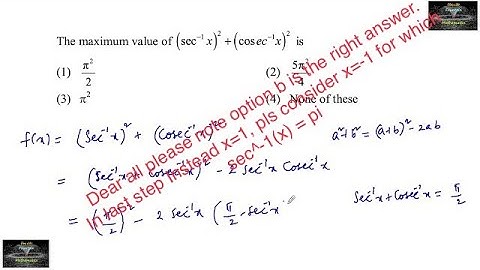 The maximum value of (sec⁻¹ x)² + (cosec⁻¹ x)² is
(1) π²/2 (2) 5π²/4
(3) π² (4) None of these
Dear all please note option b is the right answer.
In last step instead x=1, pls consider x=-1 for which
sec^-1(x) = pi
f(x) = (Sec⁻¹x)² + (Cosec⁻¹x)²
a²+b² = (a+b)² - 2ab
= (Sec⁻¹x + Cosec⁻¹x)² - 2 Sec⁻¹x Cosec⁻¹x
Sec⁻¹x + Cosec⁻¹x = π/2
= (π/2)² - 2 Sec⁻¹x (π/2 - Sec⁻¹x